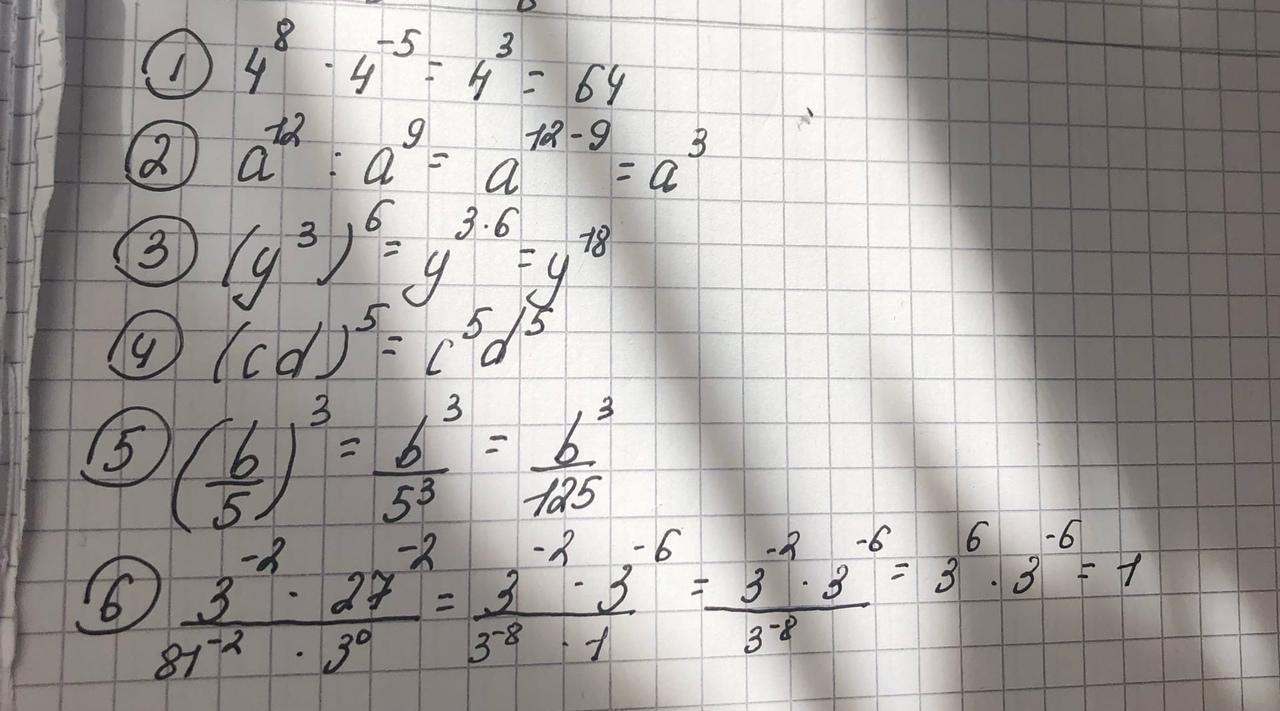 ① 4⁸ · 4⁻⁵ = 4³ = 64
② a¹² : a⁹ = a¹²⁻⁹ = a³
③ (y³)⁶ = y³·⁶ = y¹⁸
④ (cd)⁵ = c⁵d⁵
⑤ (b/5)³ = b³/5³ = b³/125
⑥ (3⁻² · 27⁻²)/(81⁻² · 3⁰) = (3⁻² · 3⁻⁶)/(3⁻⁸ · 1) = (3⁻² · 3⁻⁶)/3⁻⁸ = 3⁶ · 3⁻⁶ = 1